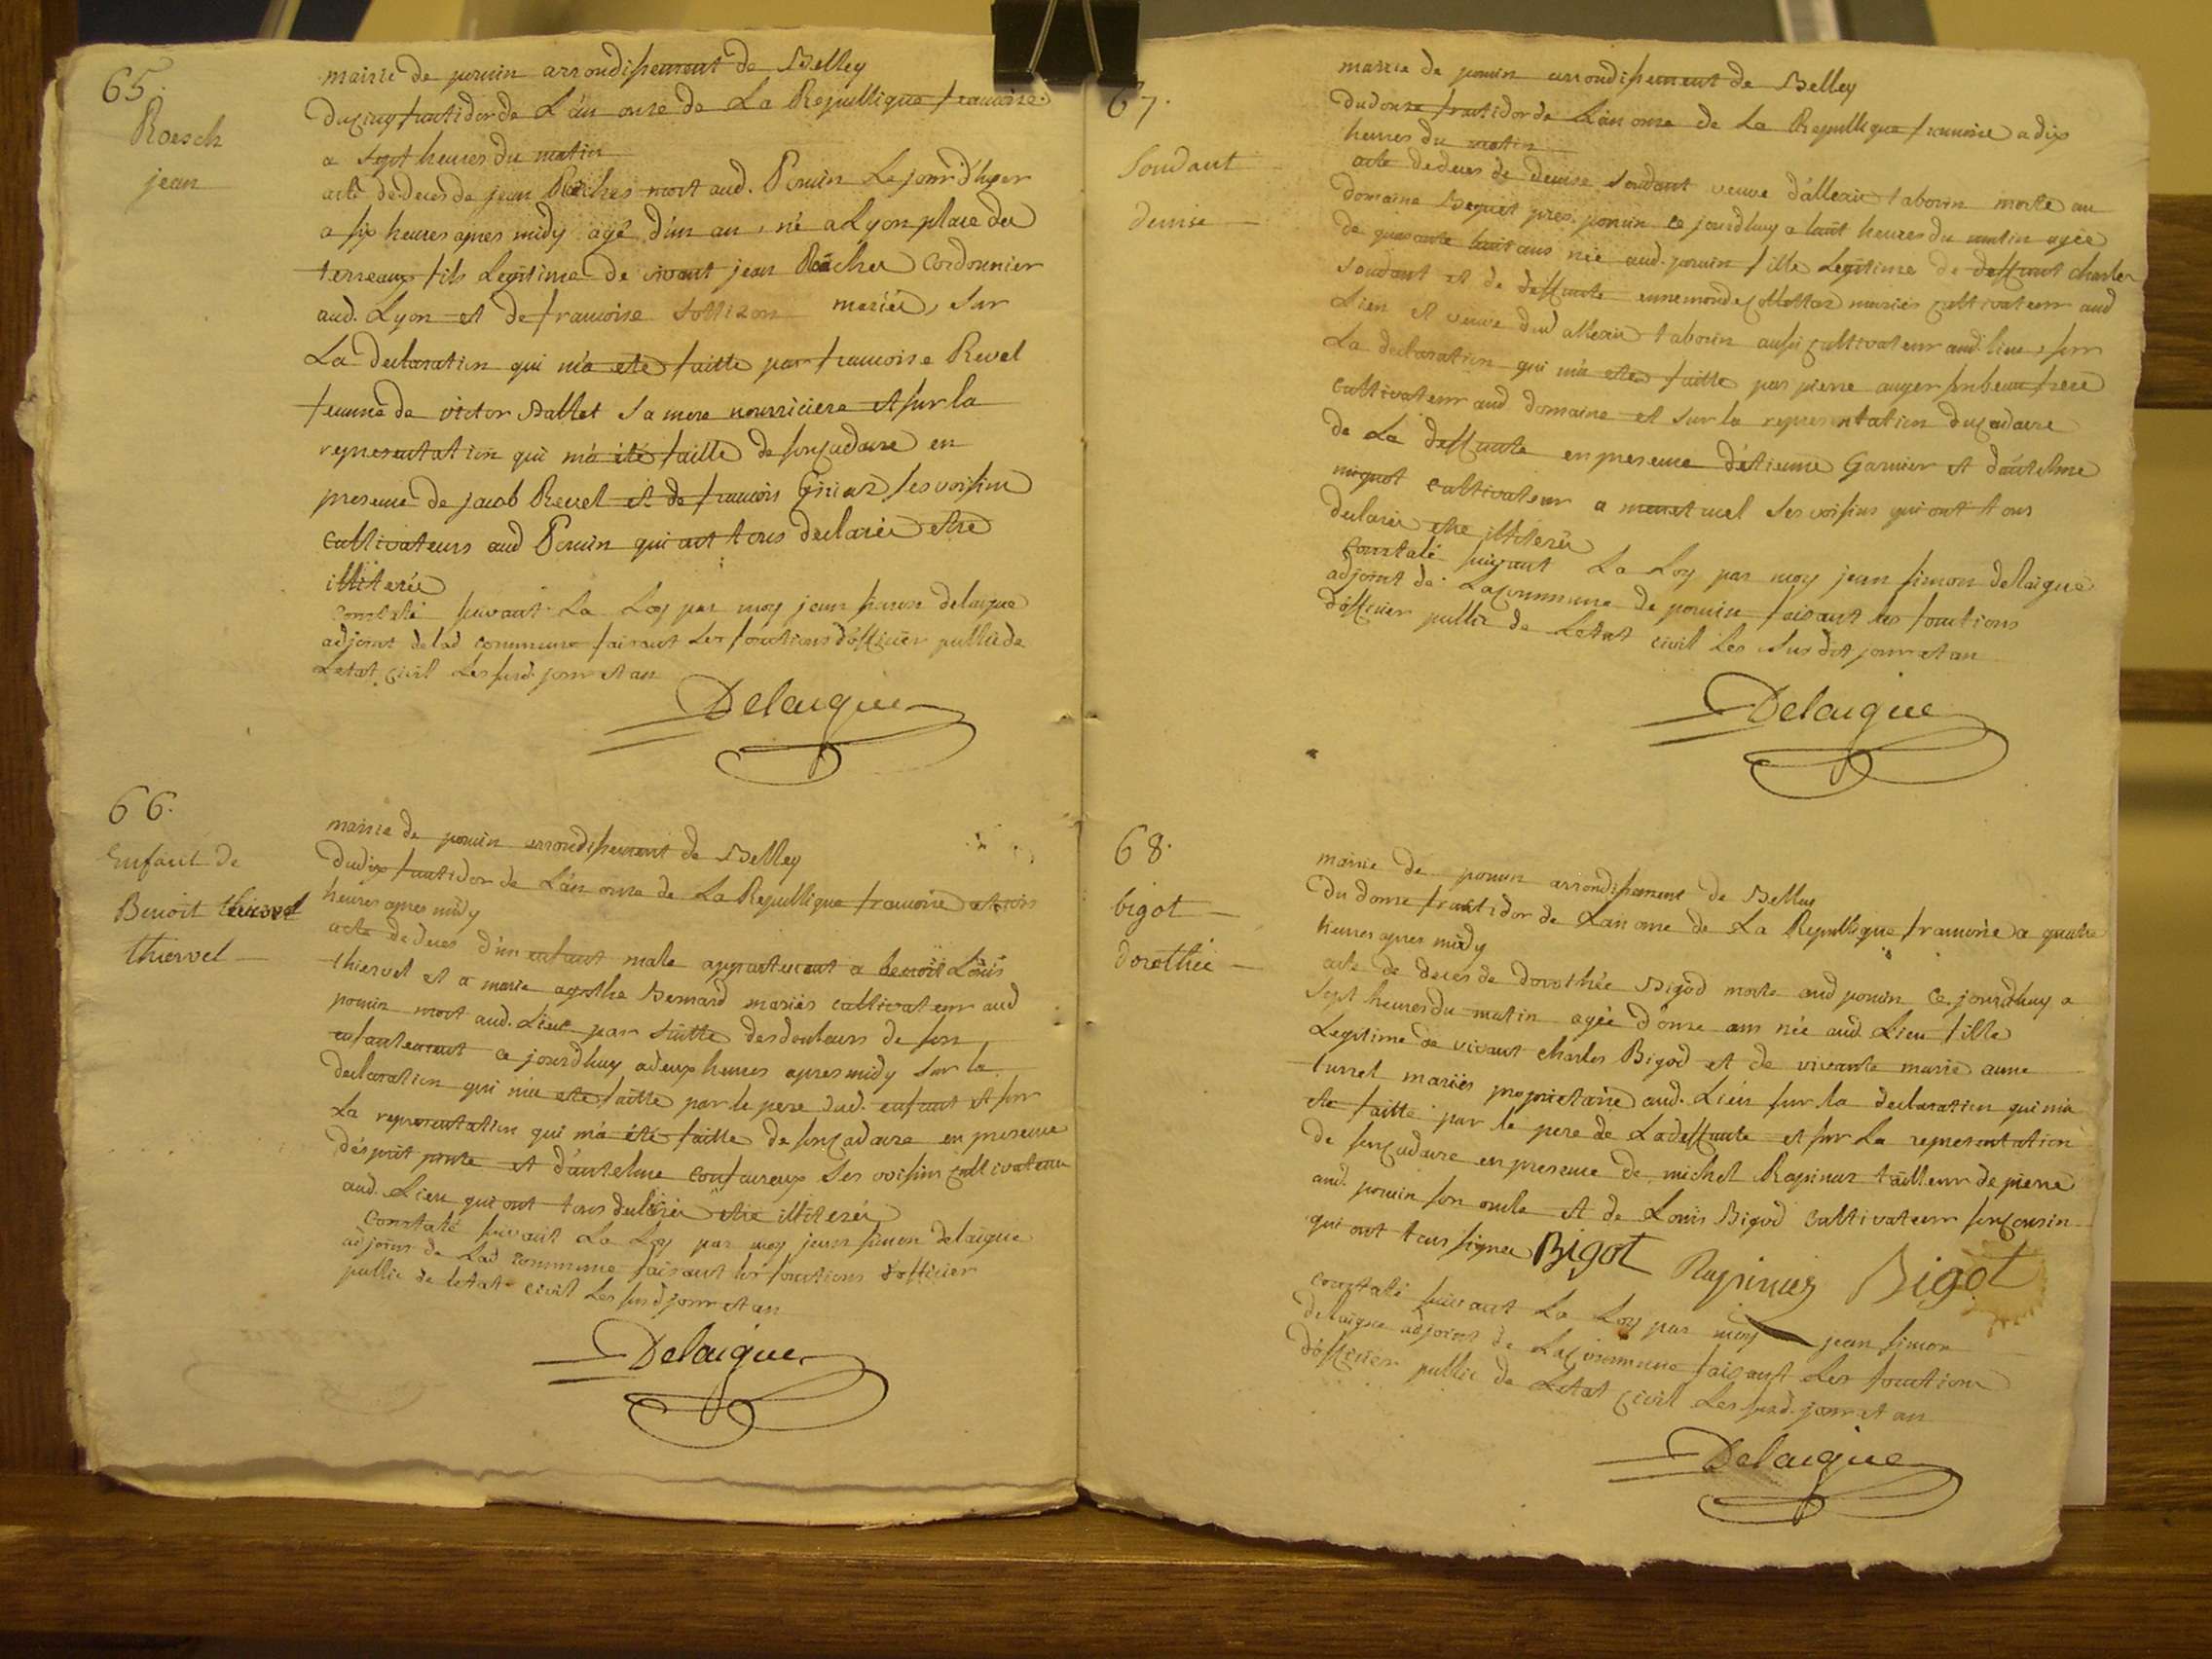 65.
Roesch
jean
mairie de poncin arrondissement de Belley
du cinq fructidor de L'an onze de La Republique francoise
a sept heures du matin
acte de deces de jean mort aud. Poncin Le jour d'hyer
a six heures apres midy agé d'un an, né a Lyon place des
terreaux fils Legitime de vivant jean Cordonnier
aud. Lyon et de francoise mariés, sur
La declaration qui m'a eté faitte par francoise Revel
femme de victor Ballet sa mere nourriciere et sur la
representation qui m'a été faitte de son cadavre en
presence de jacob Revel et de francois ses voisins
cultivateurs aud Poncin qui ont tous declarés etre
illiterés
Constaté suivant La Loy par moy jean simon delaigue
adjoint de lad commune faisant Les fonctions d'officier public de
Letat civil Les susd. jour et an
Delaigue
66.
Enfant de
Benoit
thiervel
mairie de poncin arrondissement de Belley
du dix fructidor de L'an onze de La Republique francoise a trois
heures apres midy
acte de deces d'un enfant male appartenant a benoit Louis
thiervel et a marie agathe Bernard mariés cultivateur aud
poncin mort aud. Lieu par suitte des douleurs de son
enfantement ce jourd'huy a deux heures apres midy sur la
declaration qui m'a eté faitte par le pere dud. enfant et sur
La representation qui m'a été faitte de son cadavre en presence
d'esprit et d'antelme ses voisins cultivateurs
aud. Lieu qui ont tous declarés etre illiterés
Constaté suivant La Loy par moy jean simon delaigue
adjoint de Lad commune faisant les fonctions d'officier
public de letat civil Les susd jour et an
Delaigue
67.
Soudant
denise
mairie de poncin arrondissement de Belley
du douze fructidor de L'an onze de La Republique francoise a dix
heures du matin
acte de deces de denise soudant veuve d'alleau tabouin morte au
domaine pres poncin ce jourd'huy a huit heures du matin agée
de quarante huit ans née aud. poncin fille Legitime de deffunt charles
soudant et de deffunte ennemonde mariés cultivateur aud
Lieu et veuve dud alleau tabouin aussi cultivateur aud. lieu, sur
La declaration qui m'a eté faitte par pierre auger son beau frere
cultivateur aud domaine et sur la representation du cadavre
de La deffunte en presence d'etienne Garnier et d'antelme
cultivateur a ses voisins qui ont tous
declarés etre illiterés
Constaté suivant La Loy par moy jean simon delaigue
adjoint de La commune de poncin faisant les fonctions
d'officier public de Letat civil Les susdit jour et an
Delaigue
68.
bigot
dorothée
mairie de poncin arrondissement de Belley
Du douze fructidor de Lan onze de La Republique francoise a quatre
heures apres midy
acte de deces de dorothée Bigod morte aud poncin ce jourd'huy a
sept heures du matin agée d'onze ans née aud. Lieu fille
Legitime de vivant charles Bigod et de vivante marie anne
turrel mariés proprietaire aud. Lieu sur la declaration qui m'a
ete faitte par le pere de La deffunte et sur La representation
de son cadavre en presence de michel Rapinaz tailleur de pierre
aud. poncin son oncle et de Louis Bigod cultivateur son cousin
qui ont tous signés Bigot Rapinaz Bigot
Constaté suivant La Loy par moy jean simon
delaigue adjoint de La commune faisant Les fonctions
d'officier public de Letat civil Les susd. jour et an
Delaigue